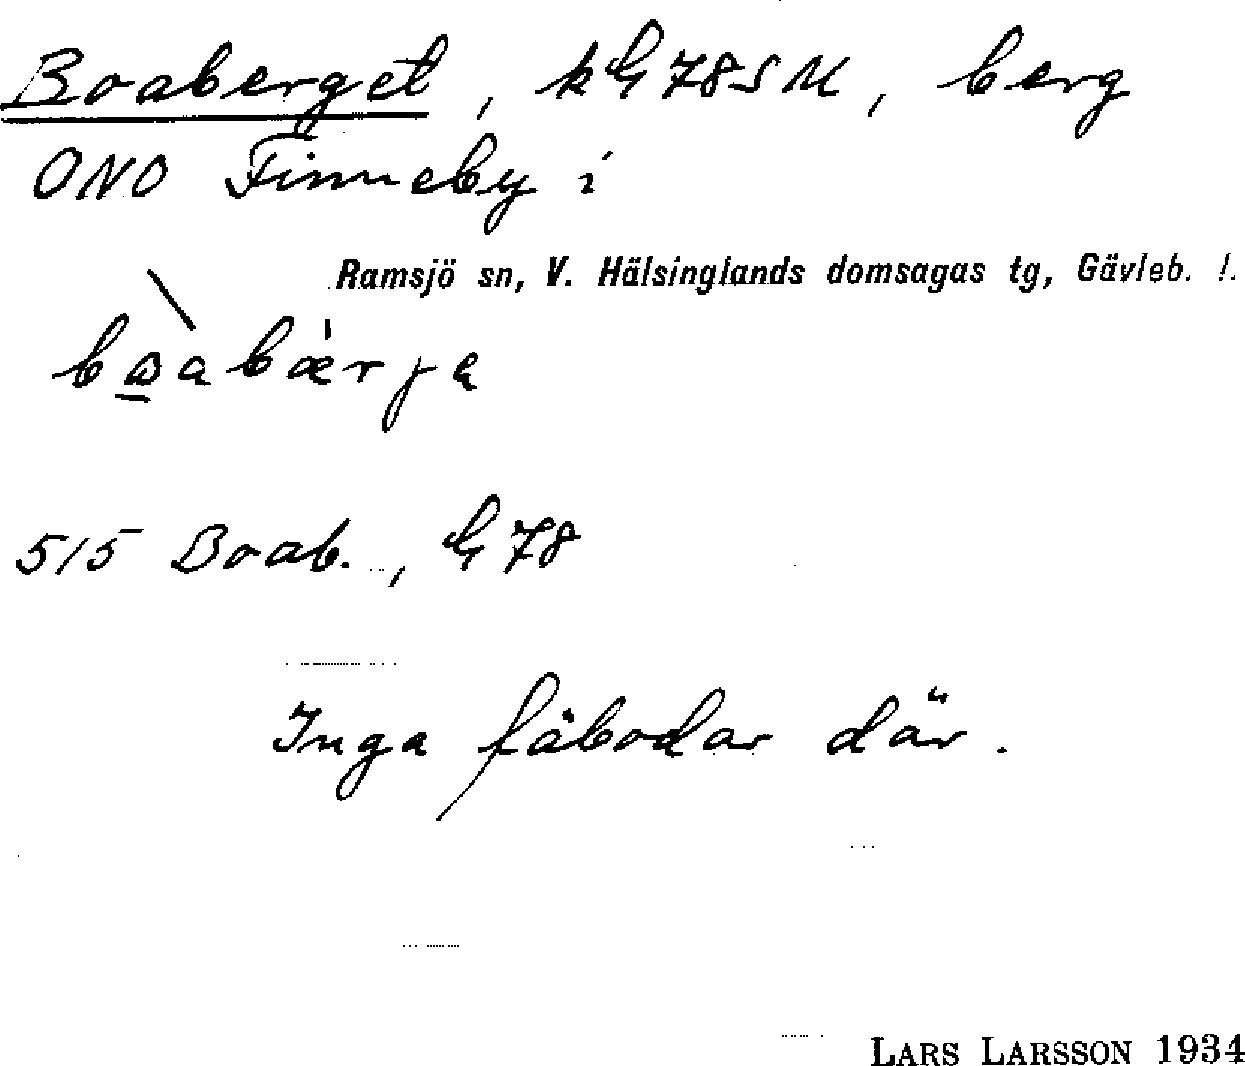 Boaberget, kG78SM, berg
ONO Finneby i
Ramsjö sn, V. Hälsinglands domsagas tg, Gävleb. l.
515 Boab., G78
Inga fäbodar där.
LARS LARSSON 1934